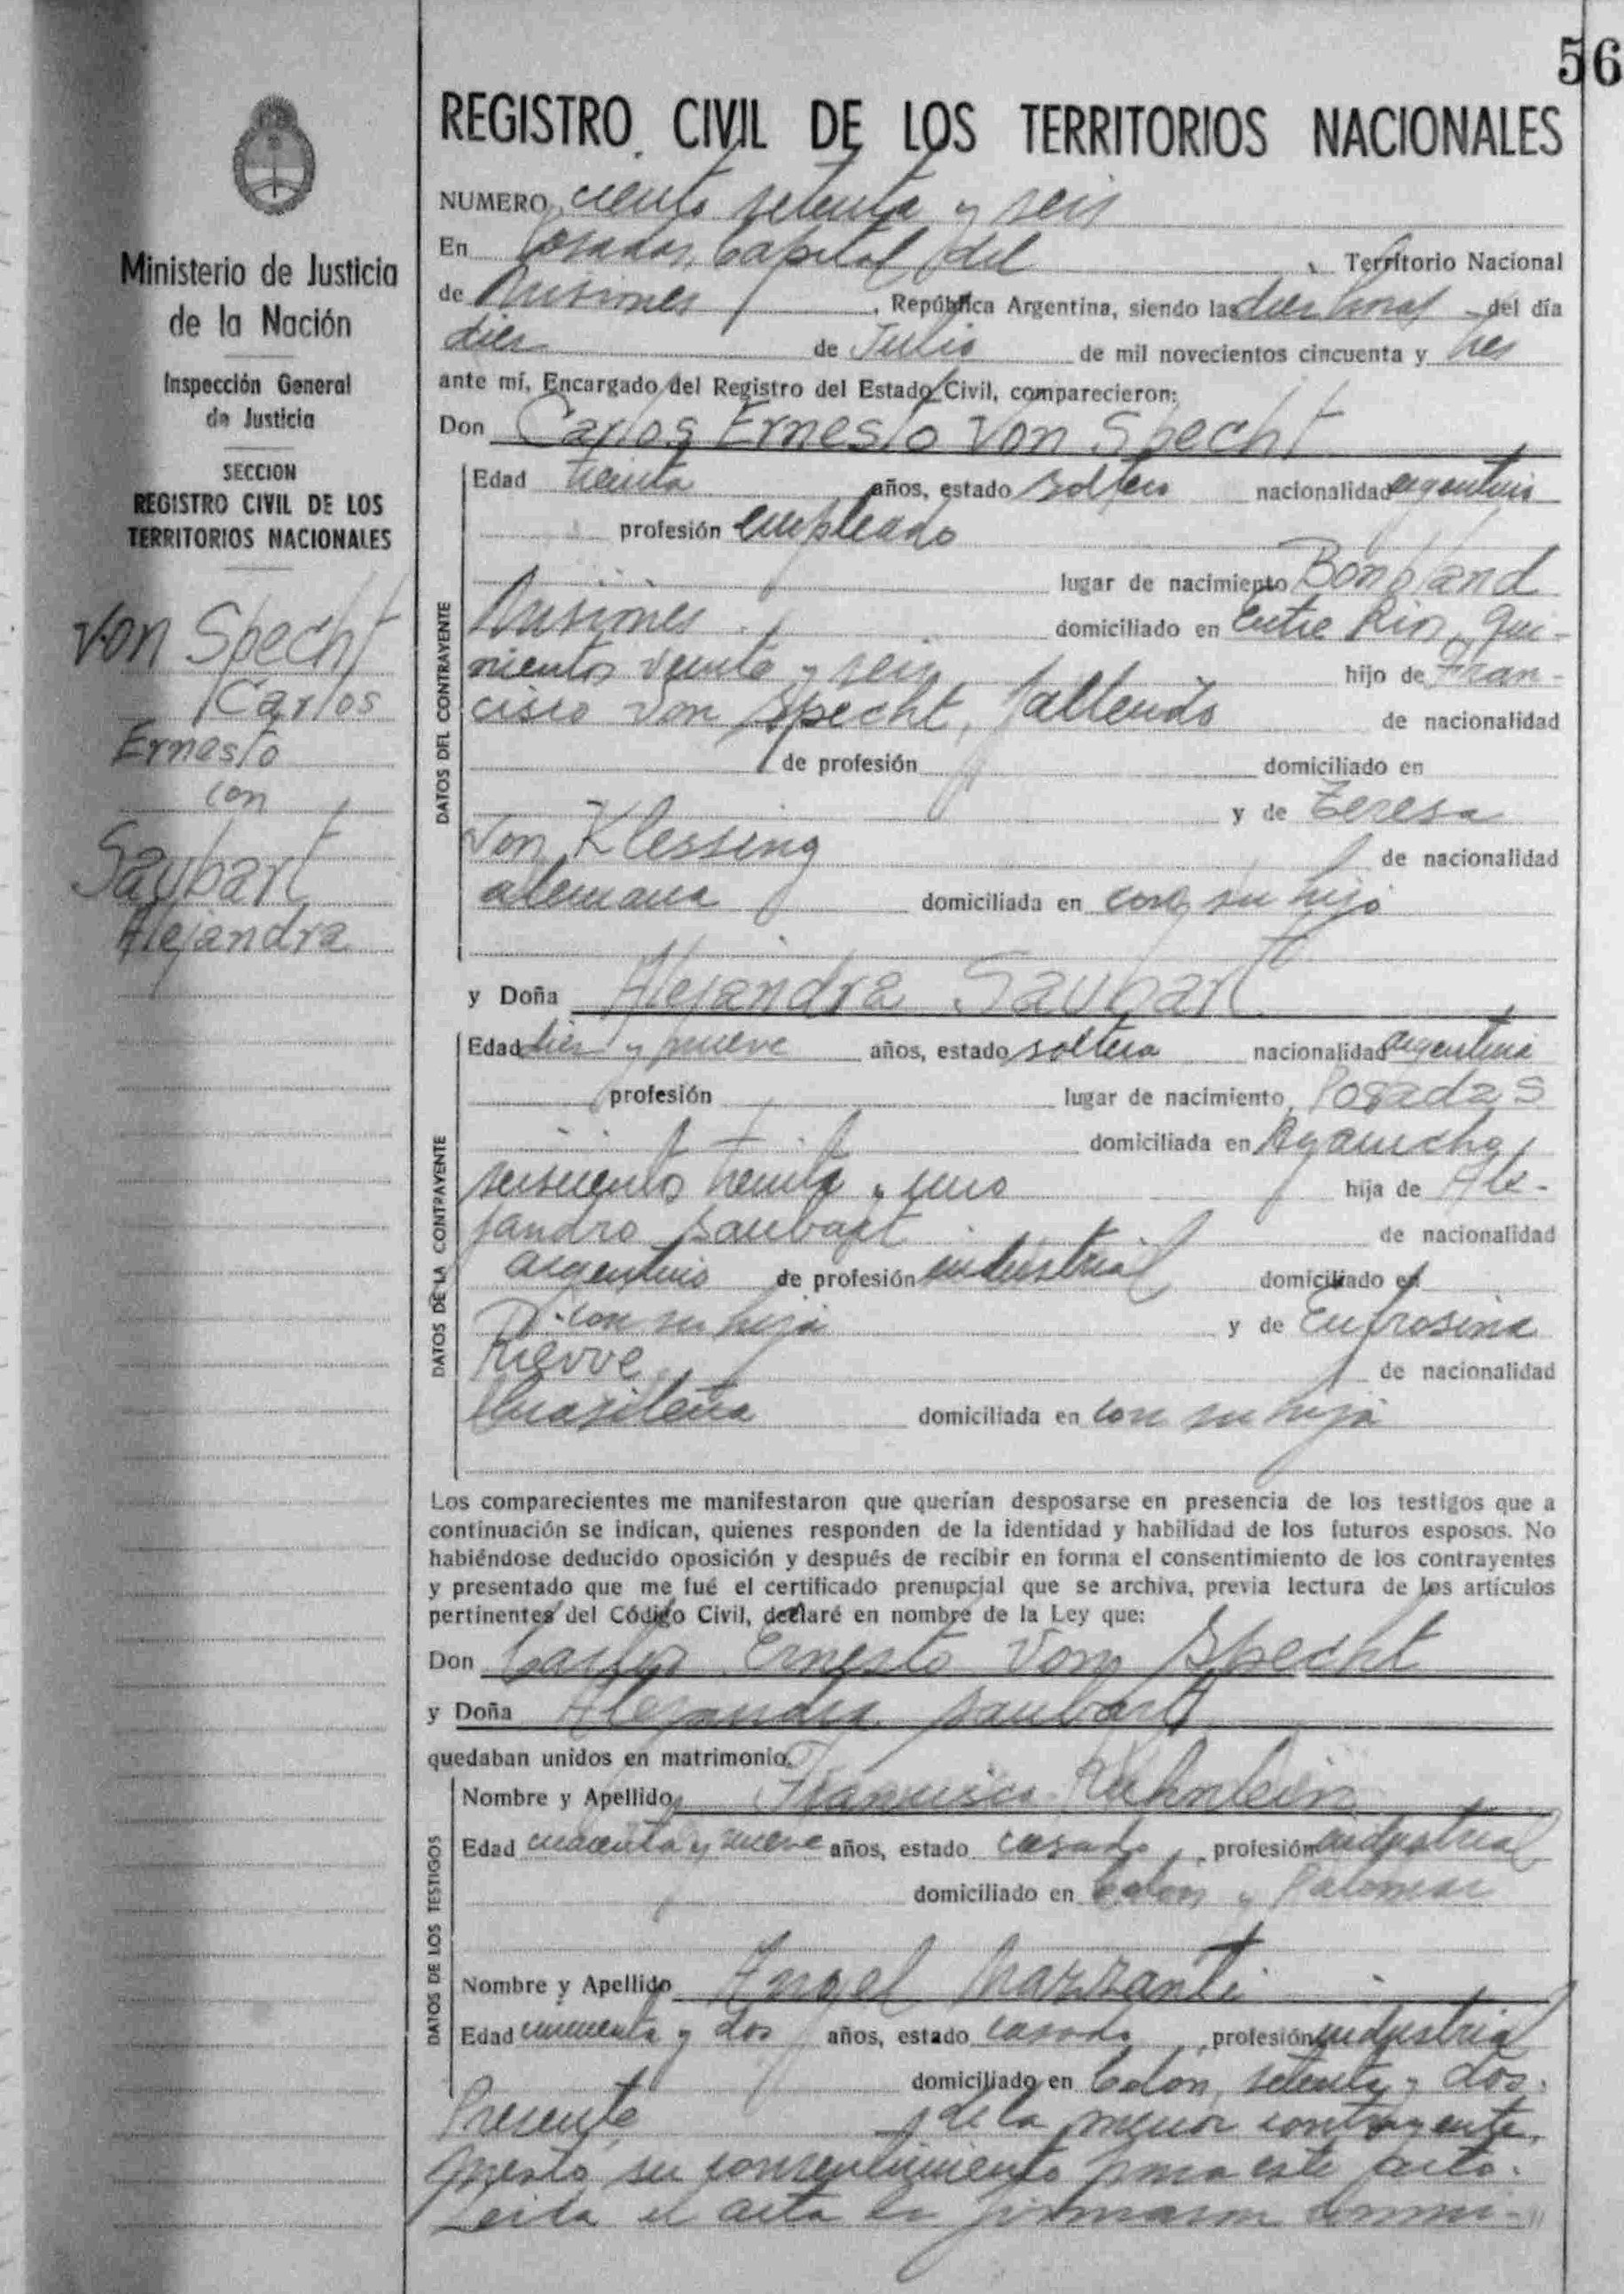 56
REGISTRO CIVIL DE LOS TERRITORIOS NACIONALES
Ministerio de Justicia
de la Nación
Inspección General
de Justicia
SECCION
REGISTRO CIVIL DE LOS
TERRITORIOS NACIONALES
Von Specht
Carlos
Ernesto
con
Saubart
Alejandra
NUMERO ciento setenta y seis
En Posadas, Capital del Territorio Nacional
de Misiones, República Argentina, siendo las diez horas del día
diez de Julio de mil novecientos cincuenta y tres
ante mí, Encargado del Registro del Estado Civil, comparecieron:
Don Carlos Ernesto Von Specht
DATOS DEL CONTRAYENTE
Edad treinta años, estado soltero nacionalidad argentino
profesión empleado
lugar de nacimiento Bonpland
Misiones domiciliado en Entre Rios, qui-
nientos veinte y seis hijo de Fran-
cisco Von Specht, fallecido de nacionalidad
de profesión domiciliado en
y de Teresa
Von Klessing de nacionalidad
alemana domiciliada en con su hijo
y Doña Alejandra Saubart
DATOS DE LA CONTRAYENTE
Edad diez y nueve años, estado soltera nacionalidad argentina
profesión lugar de nacimiento Posadas
domiciliada en Ayacucho,
seiscientos treinta y uno hija de Ale-
jandro Saubart de nacionalidad
argentino de profesión industrial domiciliado en
con su hija y de Eufrosina
de nacionalidad
brasileña domiciliada en con su hija
Los comparecientes me manifestaron que querían desposarse en presencia de los testigos que a
continuación se indican, quienes responden de la identidad y habilidad de los futuros esposos. No
habiéndose deducido oposición y después de recibir en forma el consentimiento de los contrayentes
y presentado que me fué el certificado prenupcial que se archiva, previa lectura de los artículos
pertinentes del Código Civil, declaré en nombre de la Ley que:
Don Carlos Ernesto Von Specht
y Doña Alejandra Saubart
quedaban unidos en matrimonio.
DATOS DE LOS TESTIGOS
Nombre y Apellido Francisco Kuhnlein
Edad cuarenta y nueve años, estado casado, profesión industrial
domiciliado en Colón y Palomar
Nombre y Apellido Angel Marzanti
Edad cincuenta y dos años, estado casado, profesión industrial
domiciliado en Colón, setenta y dos.
Presente de la menor contrayente,
prestó su consentimiento para este acto.
Leida el acta la firmaron conmi-